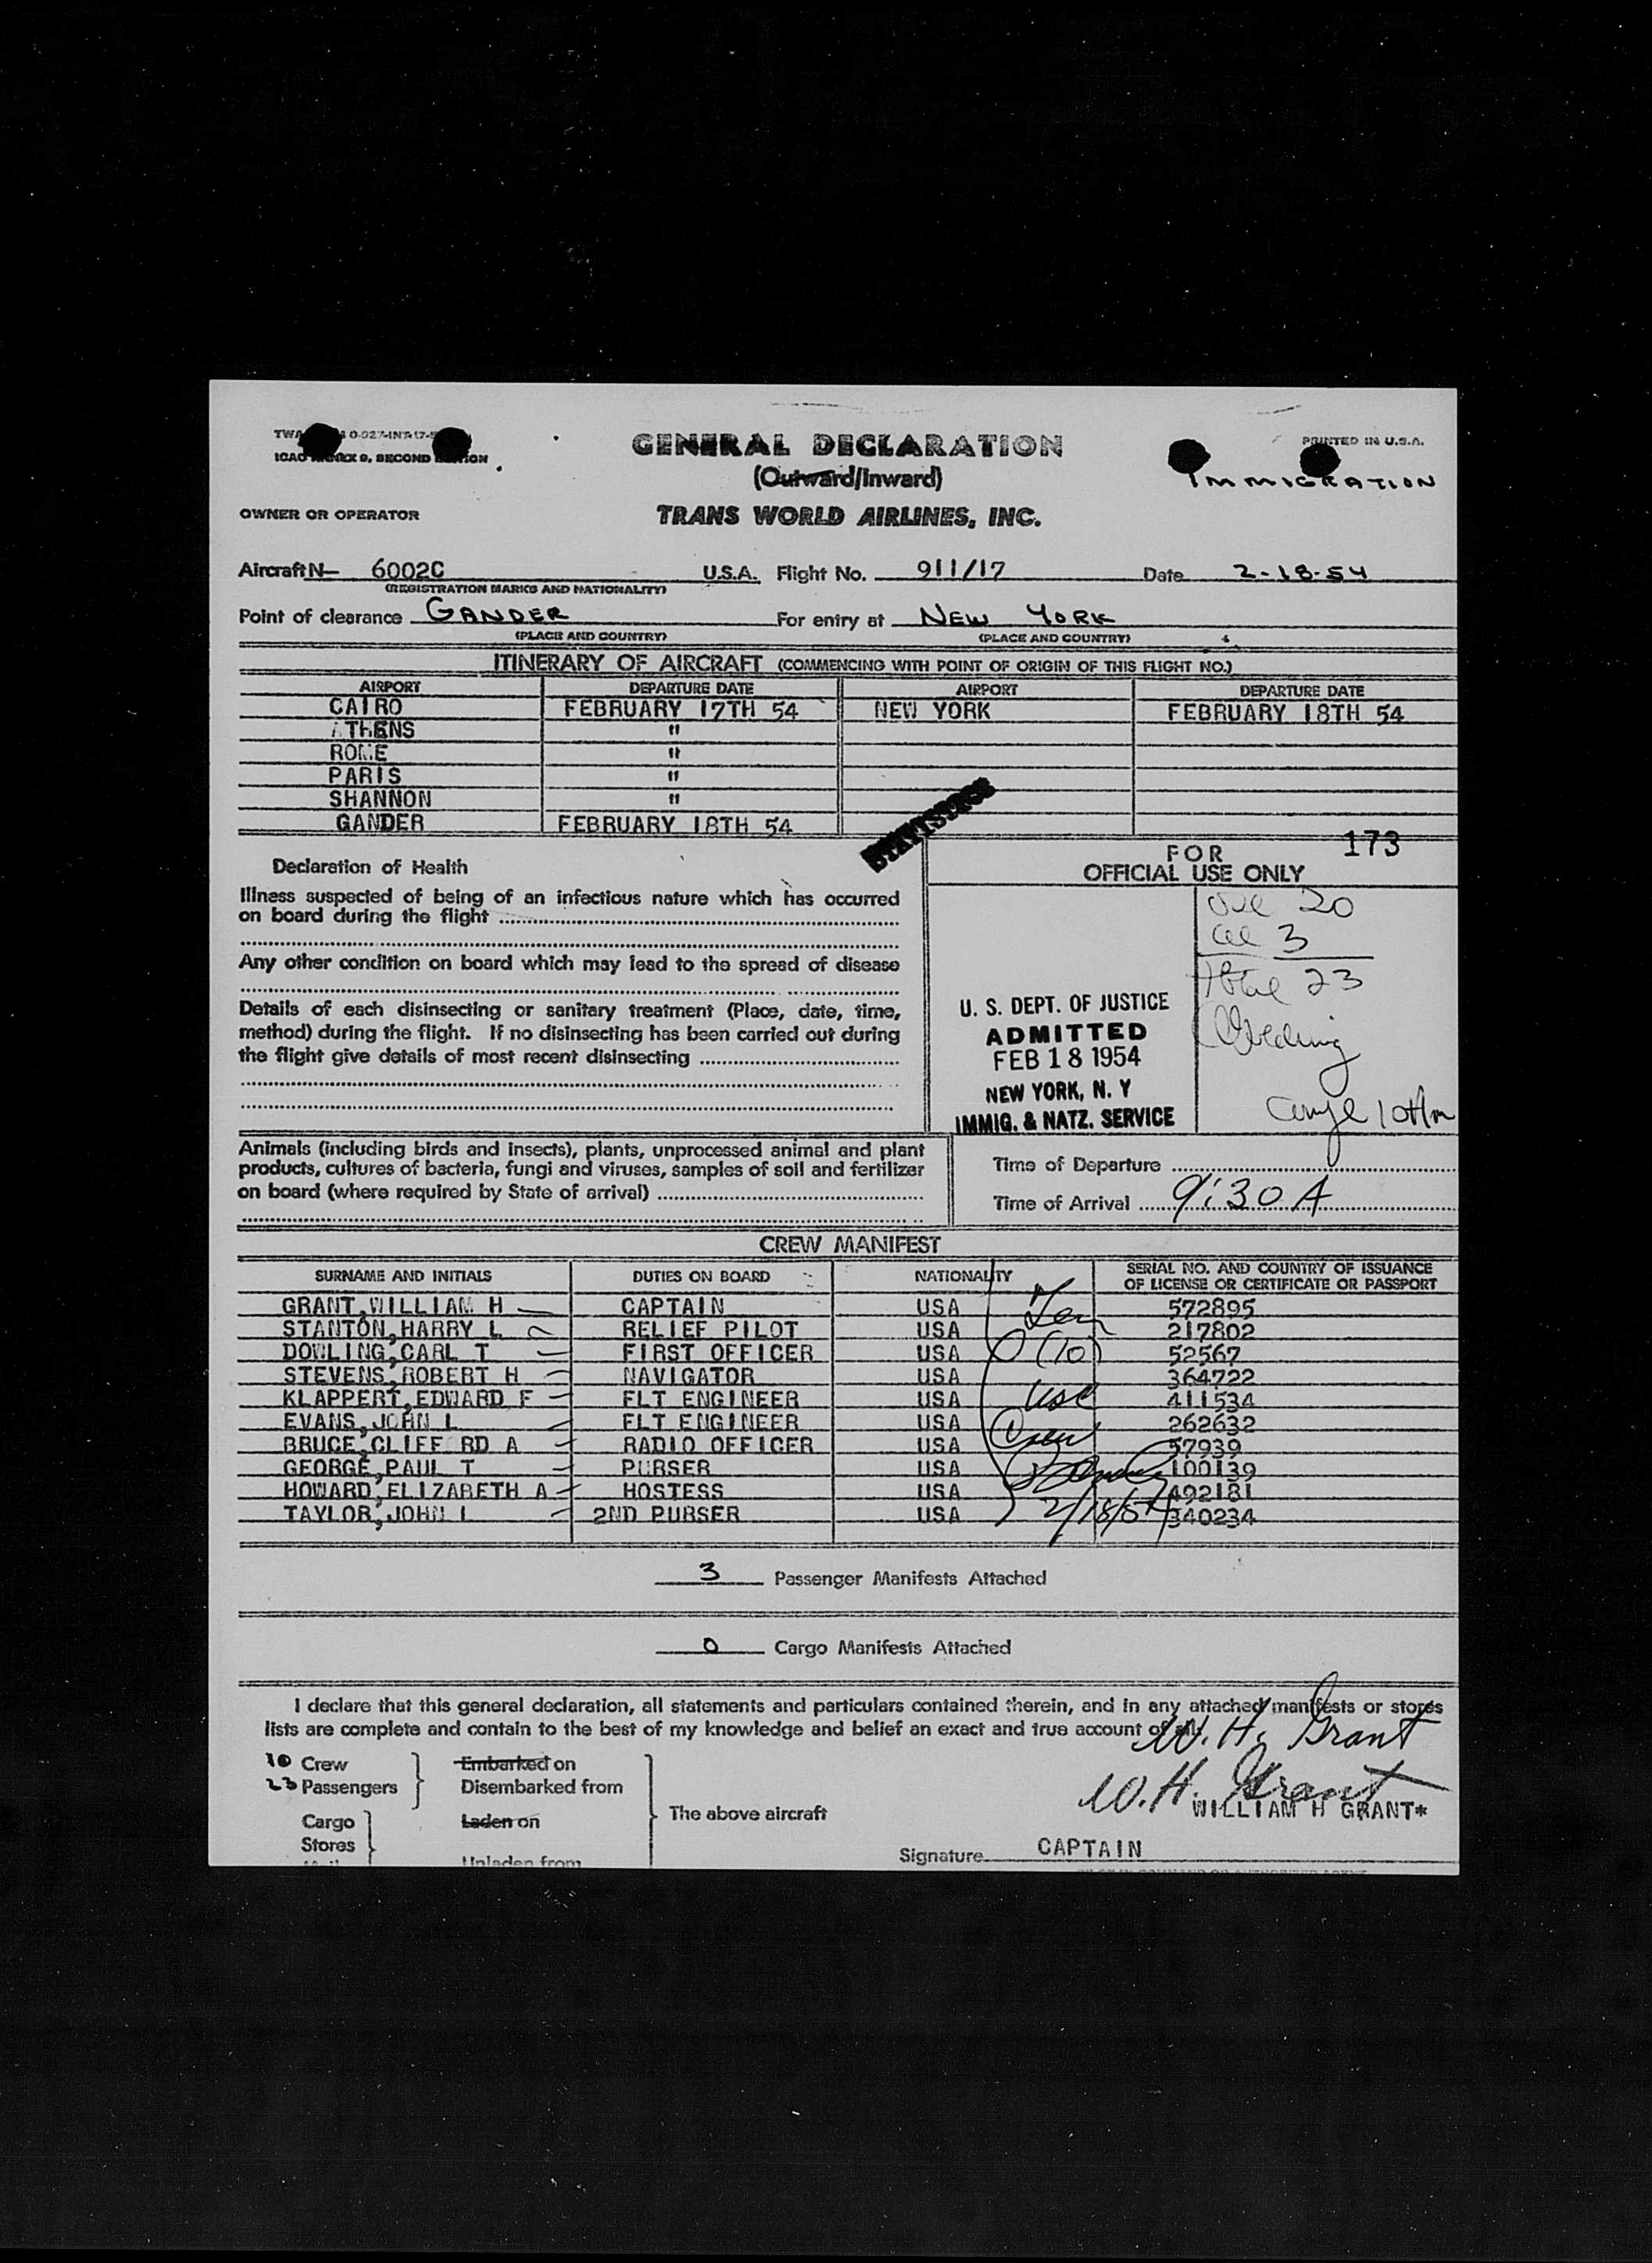 GENERAL DECLARATION
PRINTED IN U.S.A.
ICAO ANNEX 9, SECOND EDITION
(Outward/Inward)
IMMIGRATION
OWNER OR OPERATOR
TRANS WORLD AIRLINES, INC.
Aircraft N- 6002C U.S.A. Flight No. 911/17 Date 2-18-54
(REGISTRATION MARKS AND NATIONALITY)
Point of clearance GANDER For entry at NEW YORK
(PLACE AND COUNTRY) (PLACE AND COUNTRY)
ITINERARY OF AIRCRAFT (COMMENCING WITH POINT OF ORIGIN OF THIS FLIGHT NO.)
AIRPORT DEPARTURE DATE AIRPORT DEPARTURE DATE
CAIRO FEBRUARY 17TH 54 NEW YORK FEBRUARY 18TH 54
ATHENS "
ROME "
PARIS "
SHANNON "
GANDER FEBRUARY 18TH 54
STATISTICS
173
FOR
OFFICIAL USE ONLY
Declaration of Health
Illness suspected of being of an infectious nature which has occurred
on board during the flight
Any other condition on board which may lead to the spread of disease
Details of each disinsecting or sanitary treatment (Place, date, time,
method) during the flight. If no disinsecting has been carried out during
the flight give details of most recent disinsecting
20
3
Total 23
U. S. DEPT. OF JUSTICE
ADMITTED
FEB 18 1954
NEW YORK, N. Y
IMMIG. & NATZ. SERVICE
Animals (including birds and insects), plants, unprocessed animal and plant
products, cultures of bacteria, fungi and viruses, samples of soil and fertilizer
on board (where required by State of arrival)
Time of Departure
Time of Arrival 9:30 A
CREW MANIFEST
SURNAME AND INITIALS DUTIES ON BOARD NATIONALITY SERIAL NO. AND COUNTRY OF ISSUANCE
OF LICENSE OR CERTIFICATE OR PASSPORT
GRANT,WILLIAM H CAPTAIN USA 572895
STANTON,HARRY L RELIEF PILOT USA 217802
DOWLING,CARL T FIRST OFFICER USA 52567
STEVENS,ROBERT H NAVIGATOR USA 364722
KLAPPERT,EDWARD F FLT ENGINEER USA 411534
EVANS,JOHN L FLT ENGINEER USA 262632
BRUCE,CLIFF RD A RADIO OFFICER USA 57939
GEORGE,PAUL T PURSER USA 100139
HOWARD,ELIZABETH A HOSTESS USA 492181
TAYLOR,JOHN L 2ND PURSER USA 340234
Ten
(10)
USC
Crew
2/18/54
3 Passenger Manifests Attached
0 Cargo Manifests Attached
I declare that this general declaration, all statements and particulars contained therein, and in any attached manifests or stores
lists are complete and contain to the best of my knowledge and belief an exact and true account of all
W. H. Grant
10 Crew
23 Passengers
Embarked on
Disembarked from
Cargo
Stores
Laden on
Unladen from
The above aircraft
W. H. Grant
WILLIAM H GRANT*
Signature CAPTAIN